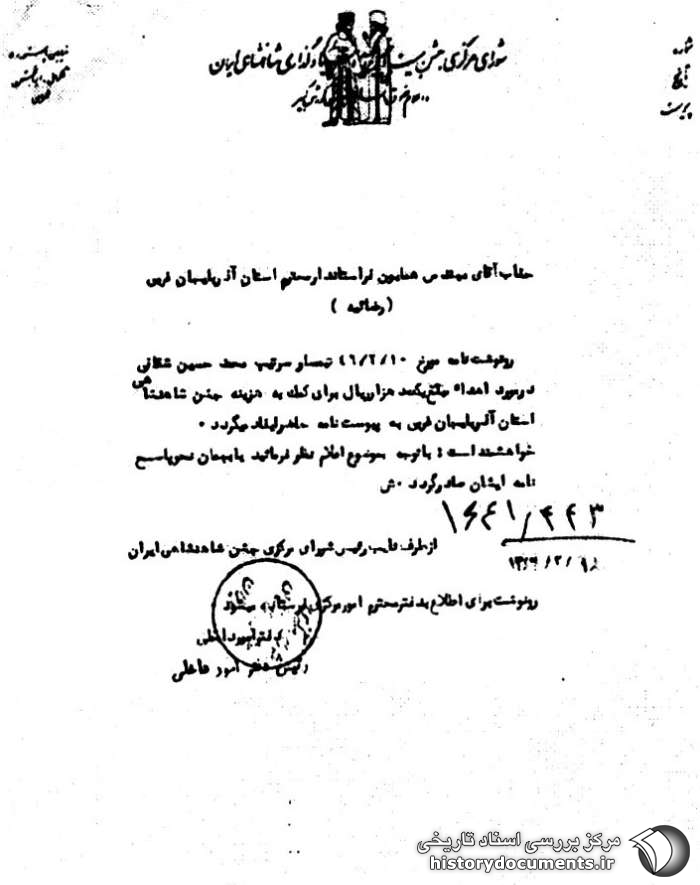 شورای مرکزی جشن بنیانگذاری شاهنشاهی ایران
شماره
تاریخ
پیوست
جناب آقای مهندس همایون فر استاندار محترم استان آذربایجان غربی
(رضائیه)
رونوشت نامه مورخ ۴۶/۲/۱۰ تیمسار سرتیپ محمد حسین شقاقی
درمورد اهداء مبلغ یکصد هزار ریال برای کمک به هزینه جشن شاهنشاهی
استان آذربایجان غربی به پیوست نامه حاضر ایفاد میگردد ۰
خواهشمند است : باتوجه بموضوع اعلام نظر فرمائید یا بچه نحو پاسخ
نامه ایشان صادر گردد ۰ش
۱۶۴۱/۴۴۳
ازطرف نایب رئیس شورای مرکزی جشن شاهنشاهی ایران
رونوشت برای اطلاع بدفتر محترم امور مرکزی میشود
دفتر امور داخلی
رئیس دفتر امور داخلی
مرکز بررسی اسناد تاریخی
historydocuments.ir